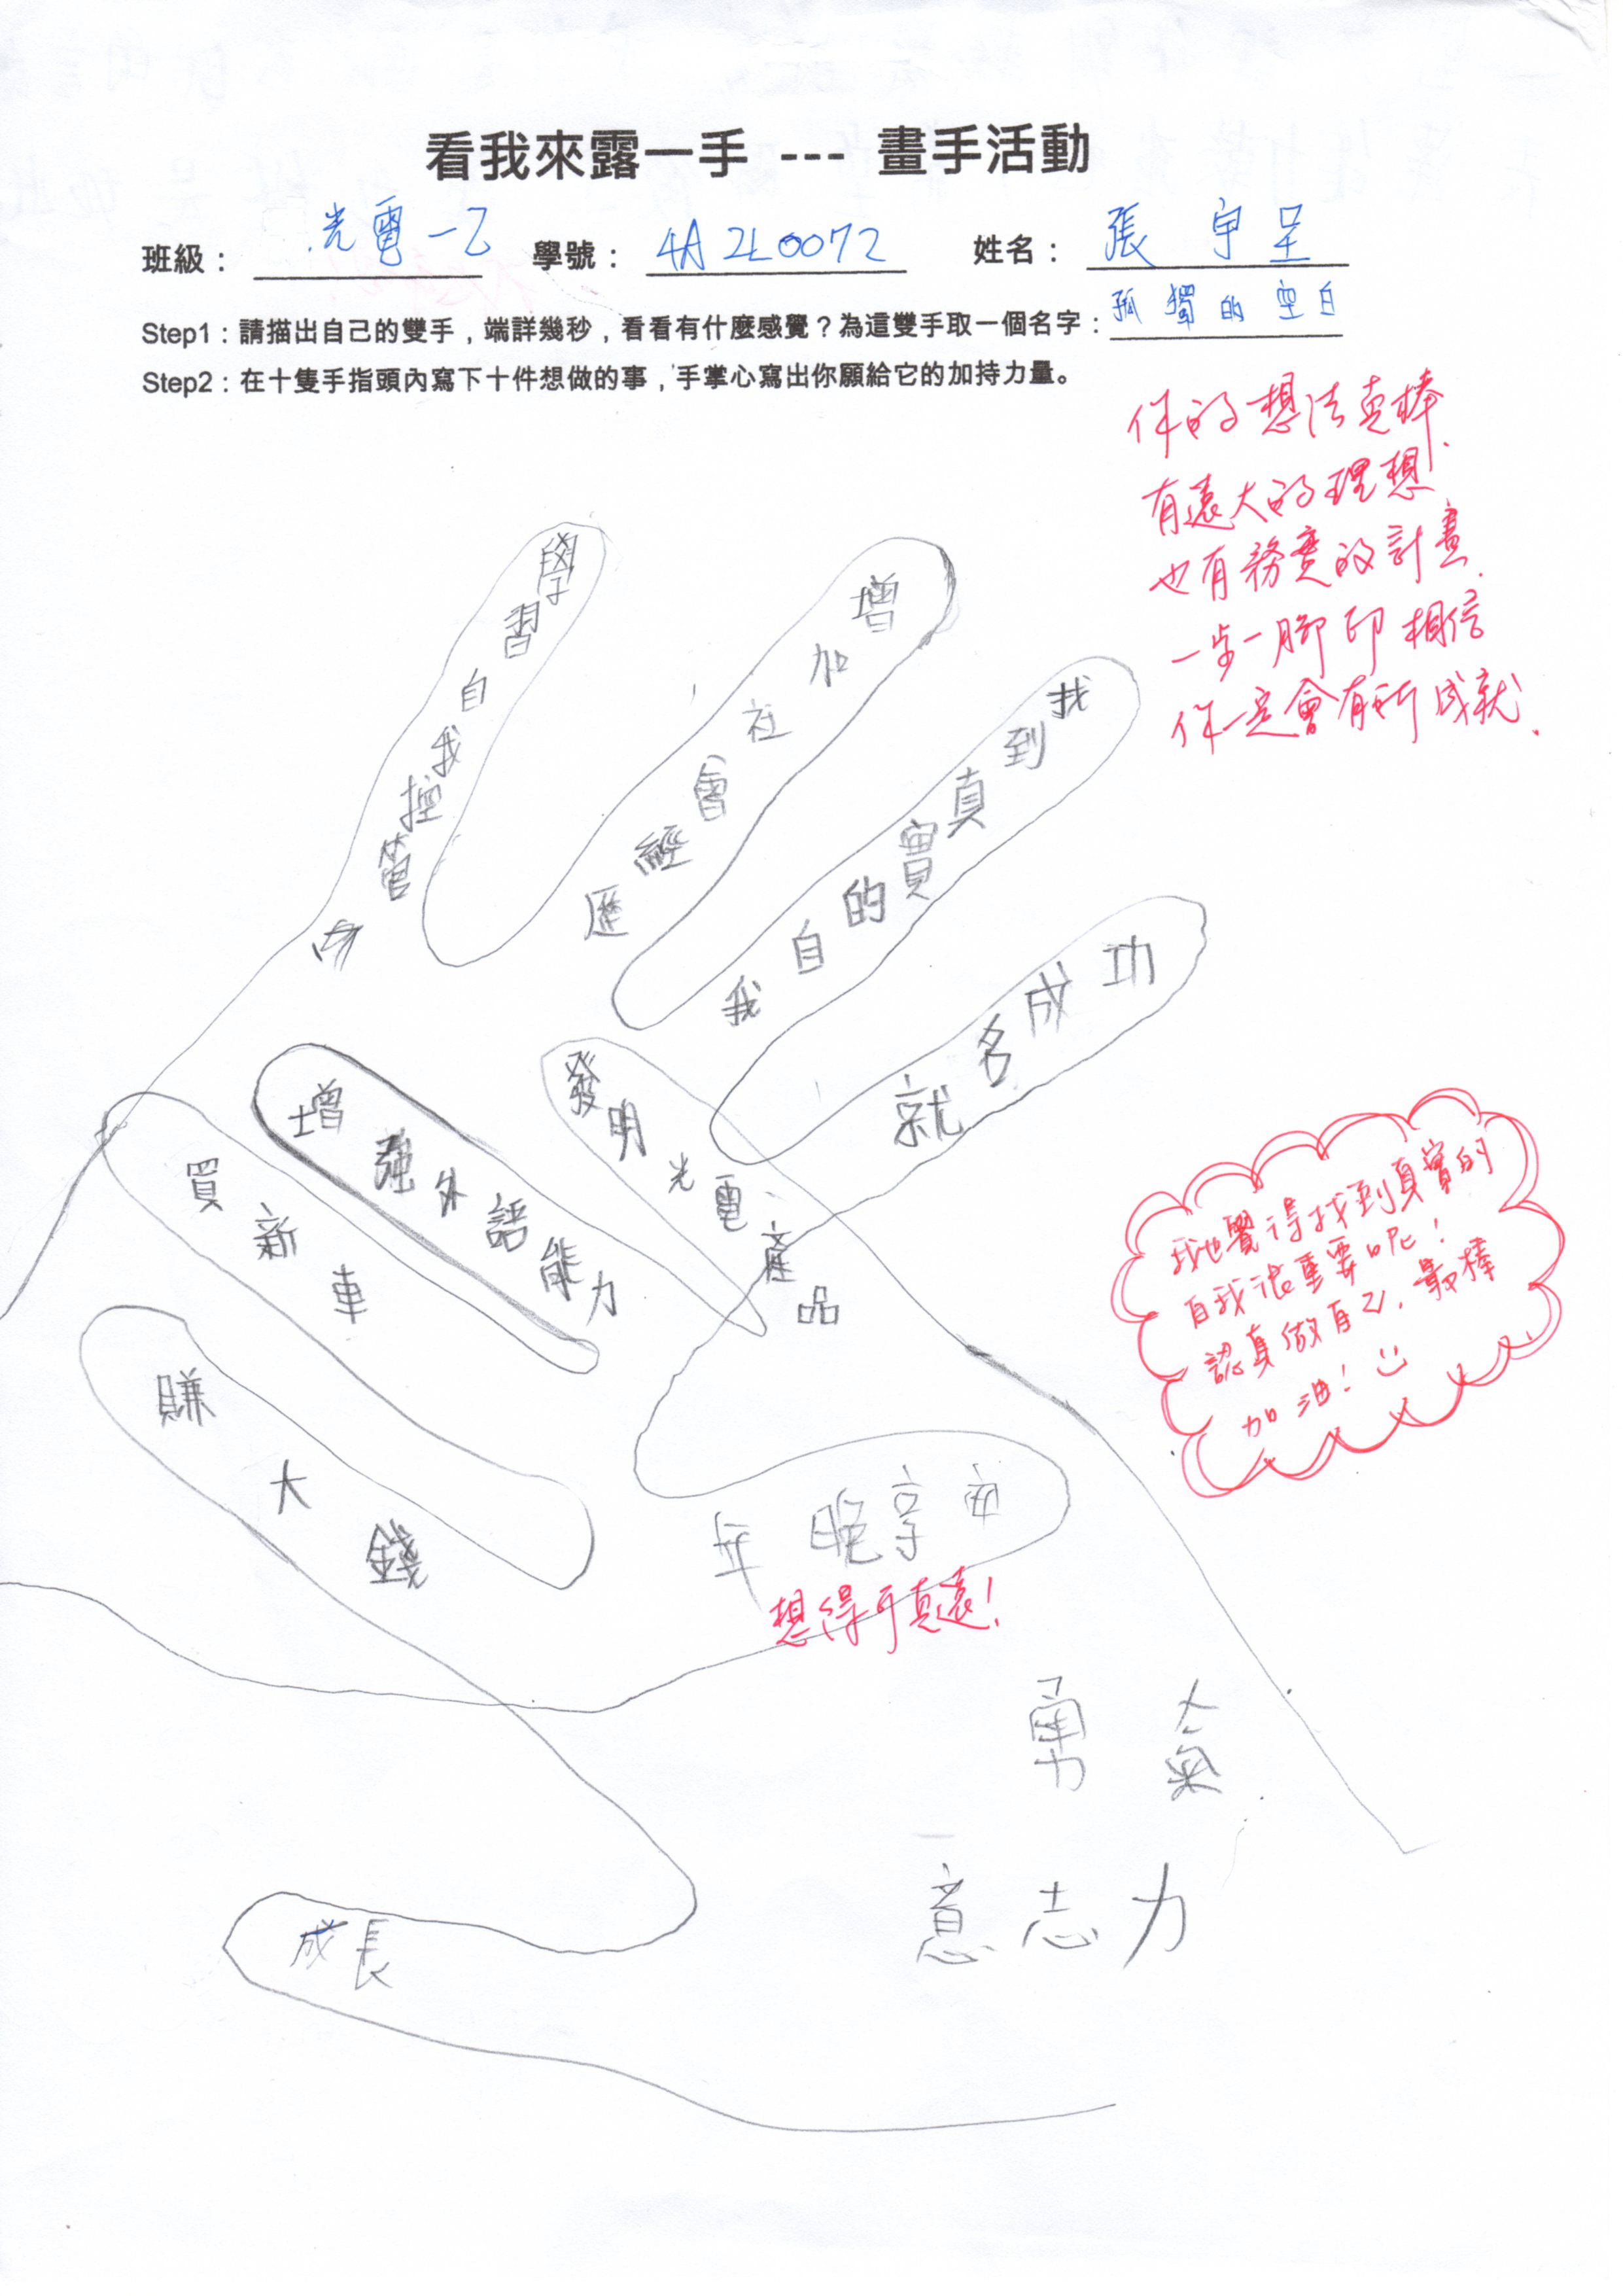 看我來露一手 --- 畫手活動
班級： 光電一乙 學號： 4A2L0072 姓名： 張宇呈
Step1：請描出自己的雙手，端詳幾秒，看看有什麼感覺？為這雙手取一個名字：孤獨的空白
Step2：在十隻手指頭內寫下十件想做的事，手掌心寫出你願給它的加持力量。
你的想法真棒.
有遠大的理想
也有務實的計畫.
一步一腳印 相信
你一定會有所成就.
學習自我控管
增加社會經歷
找到真實的自我
功成名就
發明光電產品
增強外語能力
買新車
賺大錢
我也覺得找到真實的
自我很重要呢！
認真做自己，最棒
加油！
安享晚年
想得可真遠！
勇氣
意志力
成長